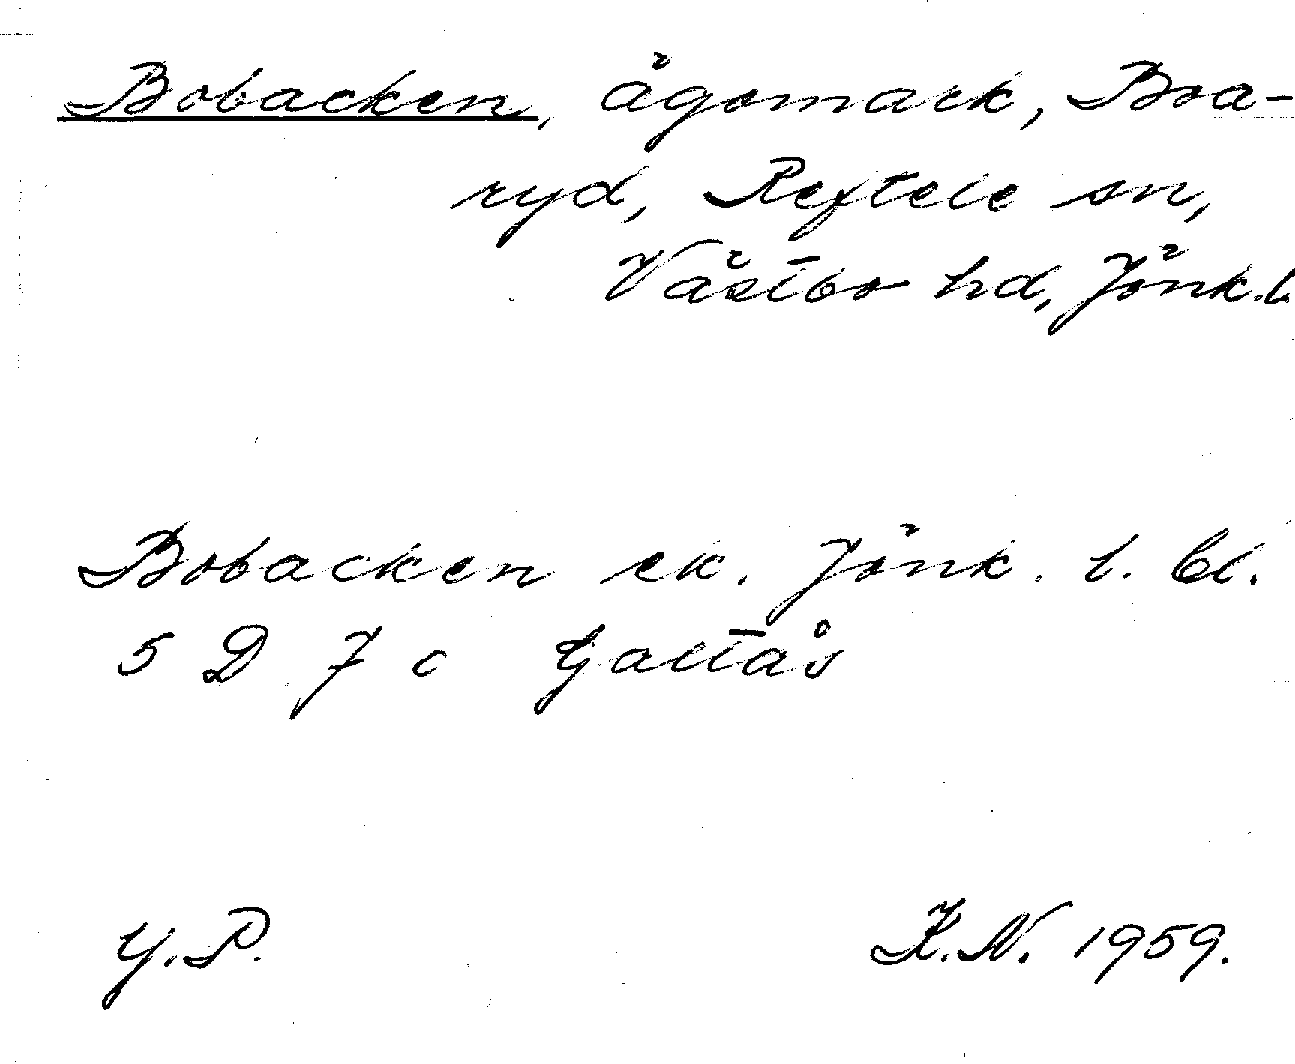 Bobacken, ägomark, Boa-
ryd, Reftele sn,
Västbo hd, Jönk.l.
Bobacken ek. Jönk. l. bl.
5 D 7 c Galtås
Y.P. K.N. 1959.